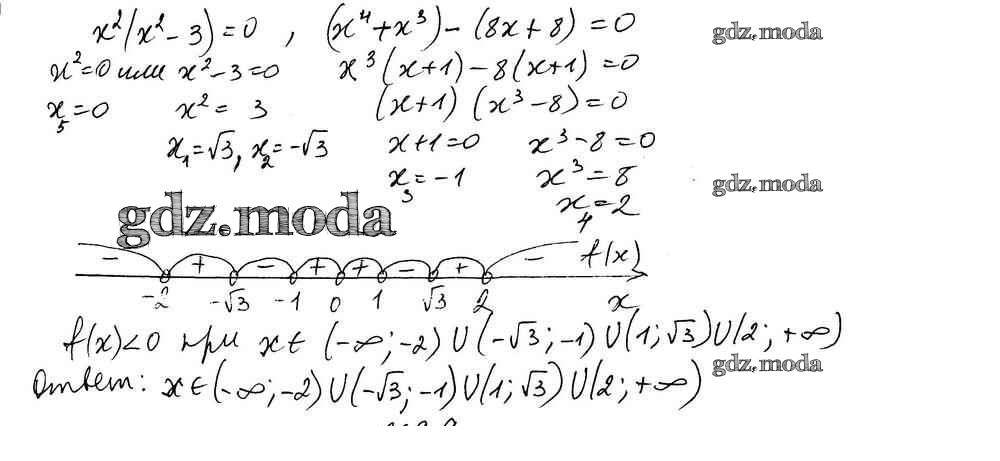 x²(x² - 3) = 0 , (x⁴ + x³) - (8x + 8) = 0
gdz.moda
x² = 0 или x² - 3 = 0 x³(x+1) - 8(x+1) = 0
x₅ = 0 x² = 3 (x+1)(x³ - 8) = 0
x₁ = √3, x₂ = -√3 x+1 = 0 x³ - 8 = 0
x₃ = -1 x³ = 8
gdz.moda
x₄ = 2
gdz.moda
- + - + + - + - f(x)
-2 -√3 -1 0 1 √3 2 x
f(x)<0 при x∈ (-∞; -2) U (-√3; -1) U (1; √3) U (2; +∞)
gdz.moda
Ответ: x∈(-∞; -2) U (-√3; -1) U (1; √3) U (2; +∞)